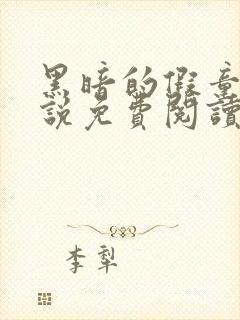 黑暗的假童
說免費閱讀
李犁